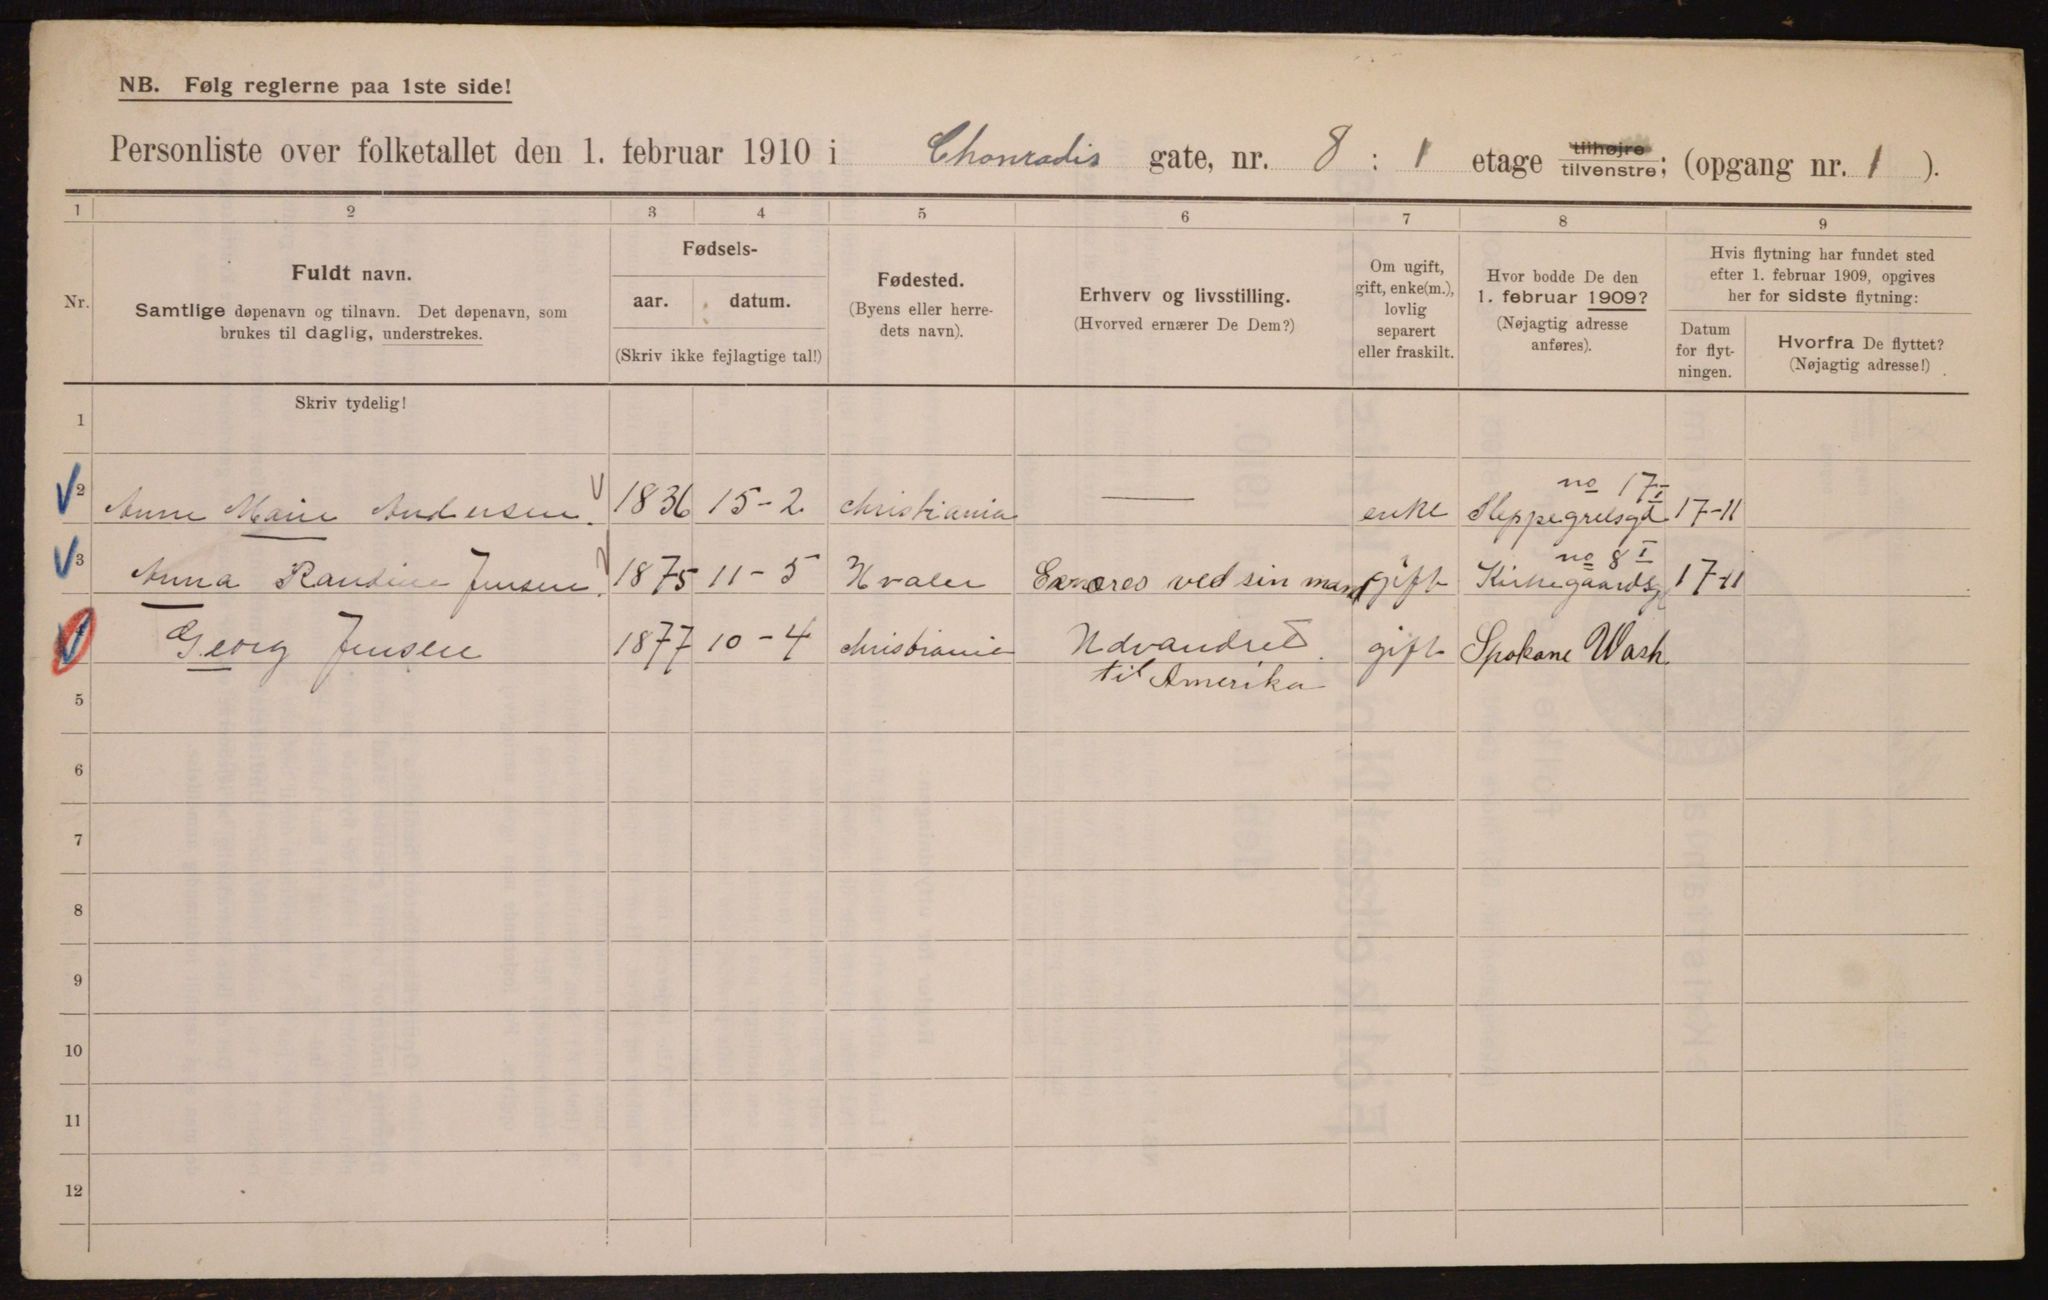 NB. Følg reglerne paa 1ste side!
Personliste over folketallet den 1. februar 1910 i Chonradis gate, nr. 8 : 1 etage tilhøjre tilvenstre; (opgang nr. 1 ).
1 2 3 4 5 6 7 8 9
Nr.
Fuldt navn.
Samtlige døpenavn og tilnavn. Det døpenavn, som
brukes til daglig, understrekes.
Fødsels-
aar. datum.
(Skriv ikke fejlagtige tal!)
Fødested.
(Byens eller herre-
dets navn).
Erhverv og livsstilling.
(Hvorved ernærer De Dem?)
Om ugift,
gift, enke(m.),
lovlig
separert
eller fraskilt.
Hvor bodde De den
1. februar 1909?
(Nøjagtig adresse
anføres).
Hvis flytning har fundet sted
efter 1. februar 1909, opgives
her for sidste flytning:
Datum
for flyt-
ningen.
Hvorfra De flyttet?
(Nøjagtig adresse!)
Skriv tydelig!
1
no 17 I
2 Anne Marie Andersen. 1836 15-2 Christiania — enke Steppegrelsgd 17-11
no 8 I
3 Anna Randine Jensen. 1875 11-5 Hvaler Ernæres ved sin mand gift Kirkegaardsg 17-11
Georg Jensen 1877 10-4 Christiania Udvandret gift Spokane Wash.
til Amerika
5
6
7
8
9
10
11
12